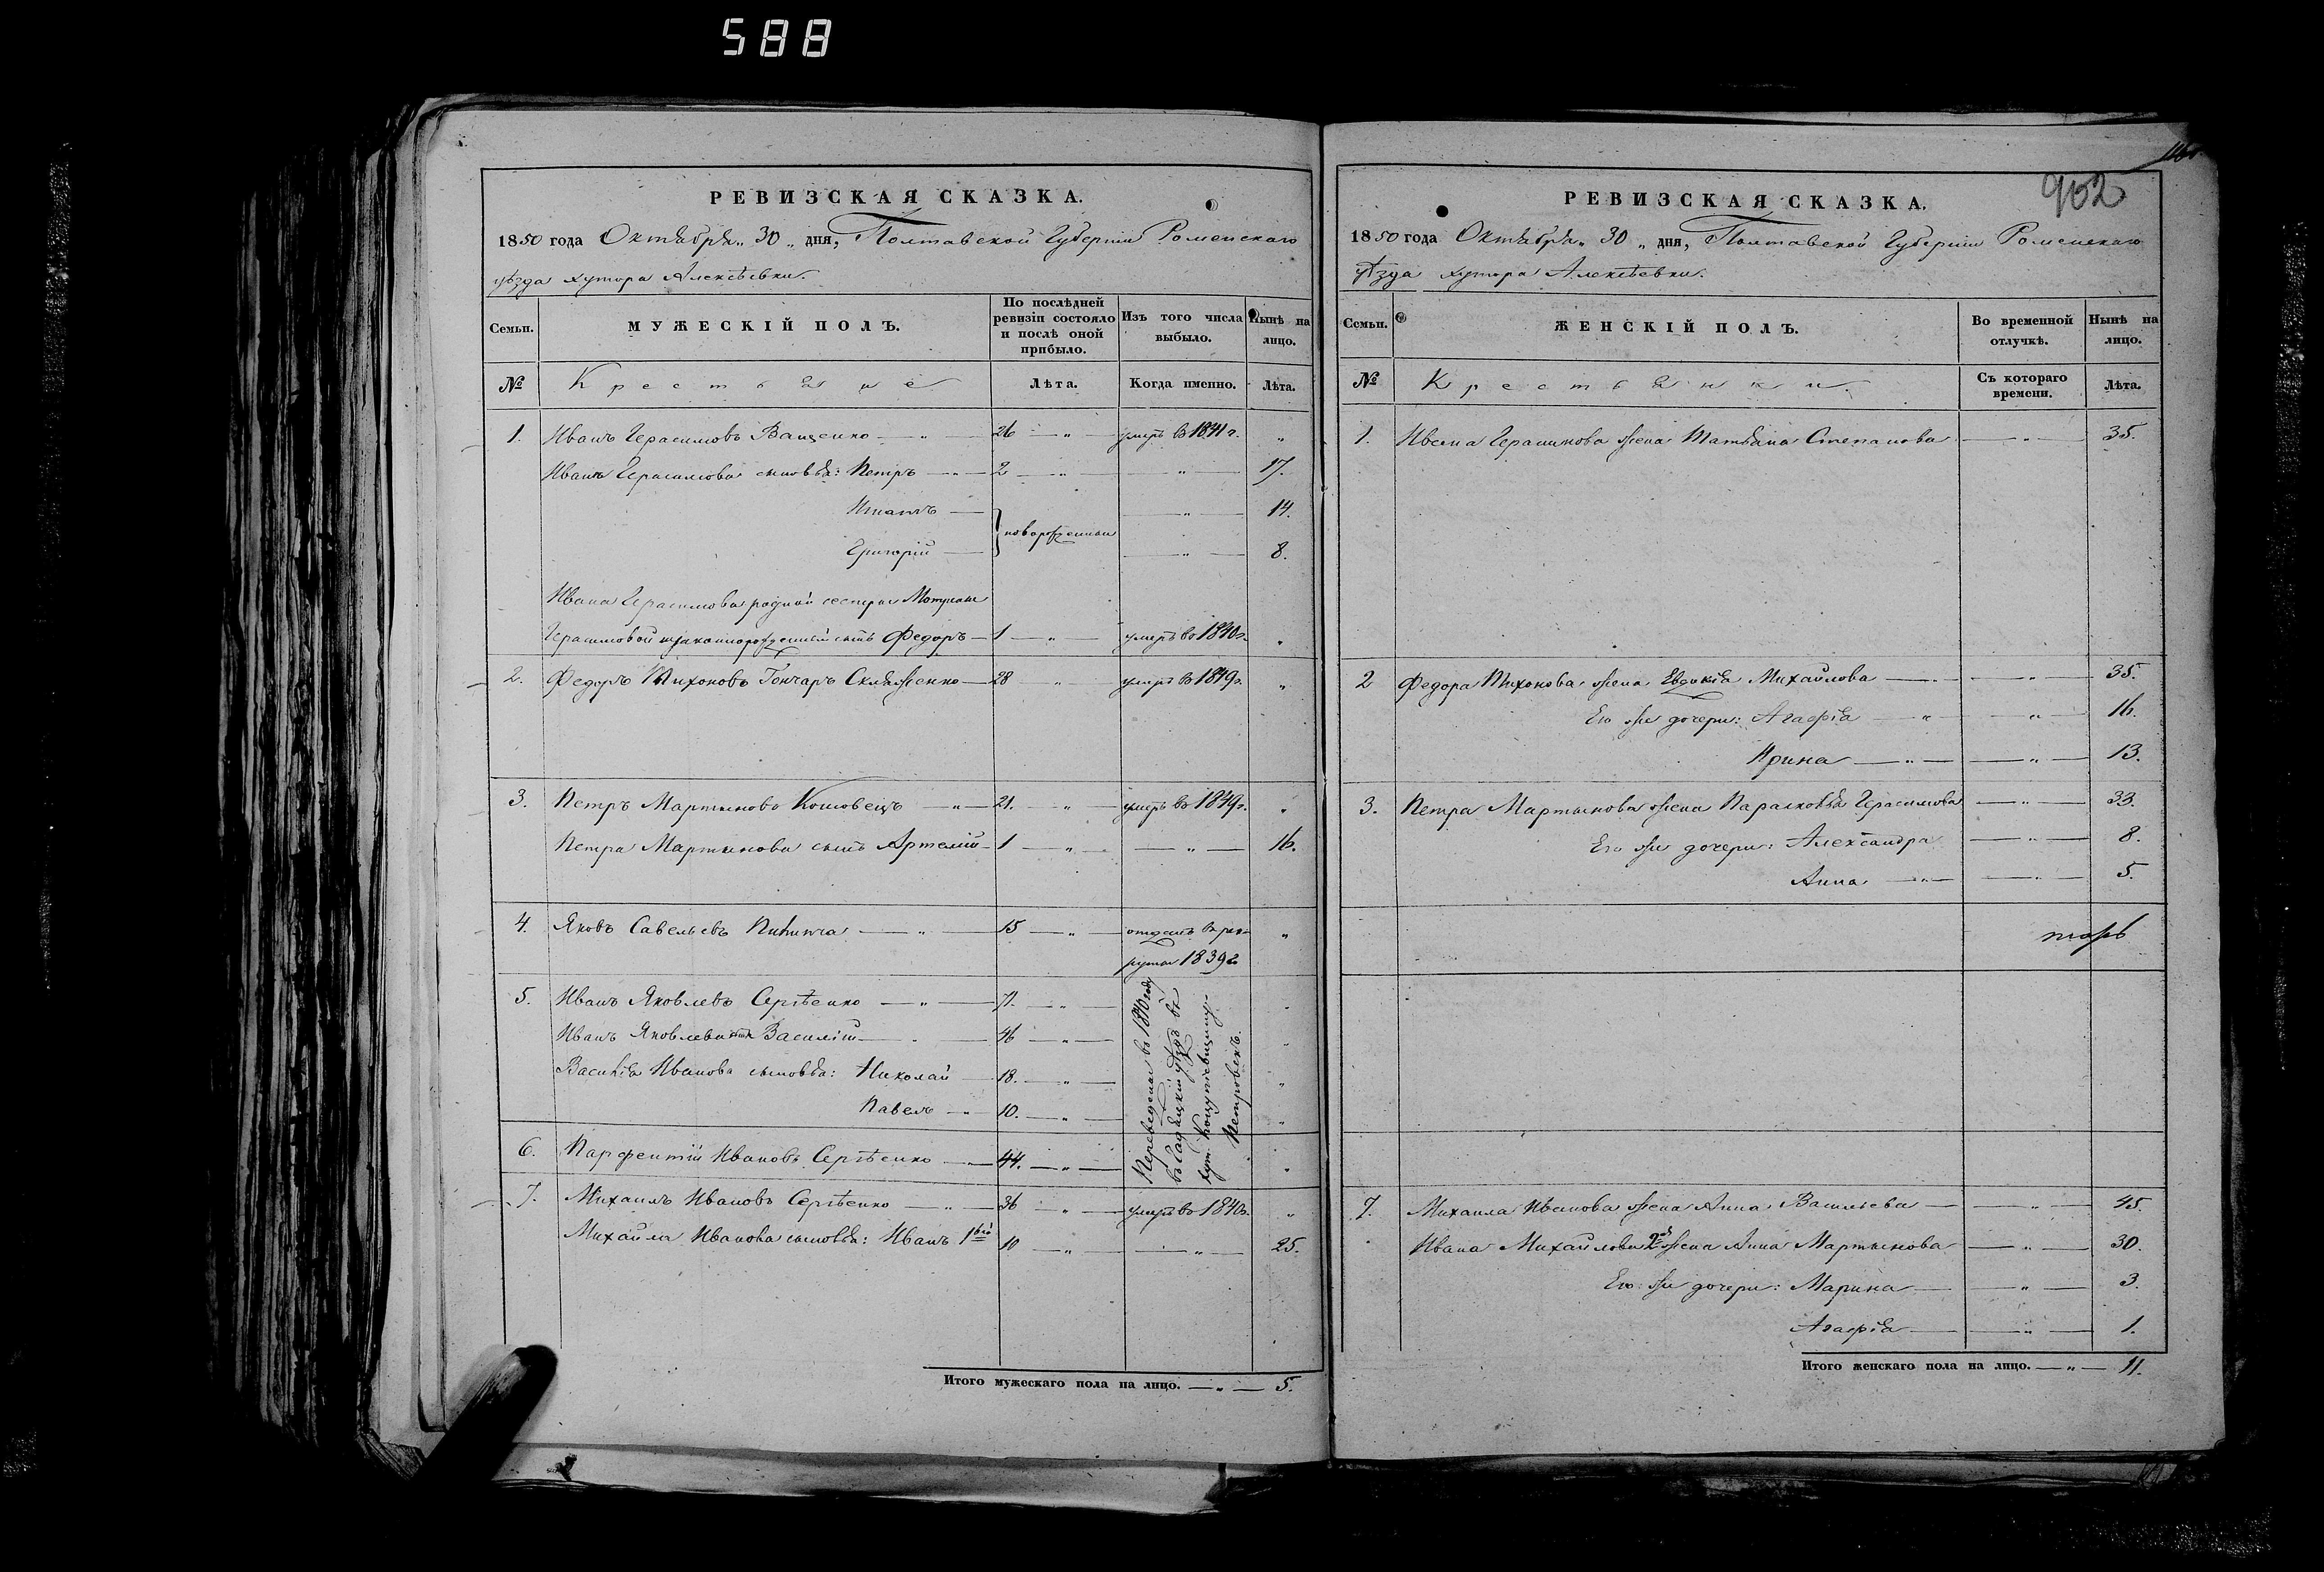 588
РЕВИЗСКАЯ СКАЗКА.
1850 года Октября „ 30 „ дня, Полтавской Губернии Роменскаго
уѣзда хутора Алексѣевки.
Семьи.
МУЖЕСКІЙ ПОЛЪ.
По послѣдней ревизіи состояло и послѣ оной прибыло.
Изъ того числа выбыло.
Нынѣ на лицо.
№
Крестьяне
Лѣта.
Когда именно.
Лѣта.
1. Иванъ Герасимовъ Ващенко — „ — 26 — „ — умеръ въ 1841 г. „
Ивана Герасимова сыновья: Петръ — „ — 2 — „ — — „ — 17.
Игнатъ — — „ — 14.
новорожденны
Григорій — — „ — 8.
Ивана Герасимова родной сестры Матрены
Герасимовой незаконнорожденный сынъ Федоръ — 1 — „ — умеръ въ 1840 г. „
2. Федоръ Тихоновъ Гончаръ Скляженко — 28 „ — умеръ въ 1849 г. „
3. Петръ Мартыновъ Кошовецъ — „ — 21. „ — умеръ въ 1849 г. „
Петра Мартынова сынъ Артемій — 1 — „ — — „ — 16.
4. Яковъ Савельевъ — „ — 15 — „ — отданъ въ рек-
руты 1839 г. „
5. Иванъ Яковлевъ Сергѣенко — „ — 71. — „ — „
Иванъ Яковлева сынъ Василій — „ — 46 — „ — „
Василія Иванова сыновья: Николай — 18. — „ — „
Павелъ — „ — 10. — „ — „
6. Парфентій Ивановъ Сергѣенко — „ — 44. — „ — „
Переведены въ 1840 году
въ Гадяцкій уѣздъ въ
хут.
Петровскъ.
7. Михаилъ Ивановъ Сергѣенко — „ — 36 „ — умеръ въ 1840 г. „
Михайла Иванова сыновья: Иванъ 1вый 10 — „ — — „ — 25.
Итого мужескаго пола на лицо. — „ — 5.
902
РЕВИЗСКАЯ СКАЗКА.
1850 года Октября „ 30 „ дня, Полтавской Губерніи Роменскаго
уѣзда хутора Алексѣевки.
Семьи.
ЖЕНСКІЙ ПОЛЪ.
Во временной отлучкѣ.
Нынѣ на лицо.
№
Крестьянки.
Съ котораго времени.
Лѣта.
1. Ивана Герасимова жена Татьяна Степанова — „ — 35.
2 Федора Тихонова жена Евдокія Михайлова — „ — — „ — 35.
Его же дочери: Агафія — „ — — „ — 16.
Ирина — „ — — „ — 13.
3. Петра Мартынова жена Парасковья Герасимова — „ — 33.
Его же дочери: Александра — „ — 8.
Анна — „ — — „ — 5.
7. Михаила Иванова жена Анна Васильева — — „ — 45.
Ивана Михайлова 2я жена Анна Мартынова — „ — 30.
Его же дочери: Марина — — „ — 3.
Агафія — — „ — 1.
Итого женскаго пола на лицо. — „ — 11.